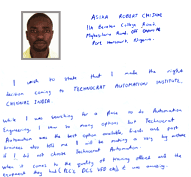 ASIKA ROBERT CHISOM
11A Benson College Road,
Port Harcourt, Nigeria.
I wish to state that I made the right
decision coming to TECHNOCRAT AUTOMATION INSTITUTE,
CHENNAI INDIA.
While I was searching for a place to do Automation
Engineering, I saw so many options but Technocrat
Automation was the best option available, friends and past
trainees also tell me I will be making a very big mistake
if I did not choose Technocrat Automation.
When it comes to the quality of training offered and the
equipment they had (PLC's DCS VFD etc) it was amazing.